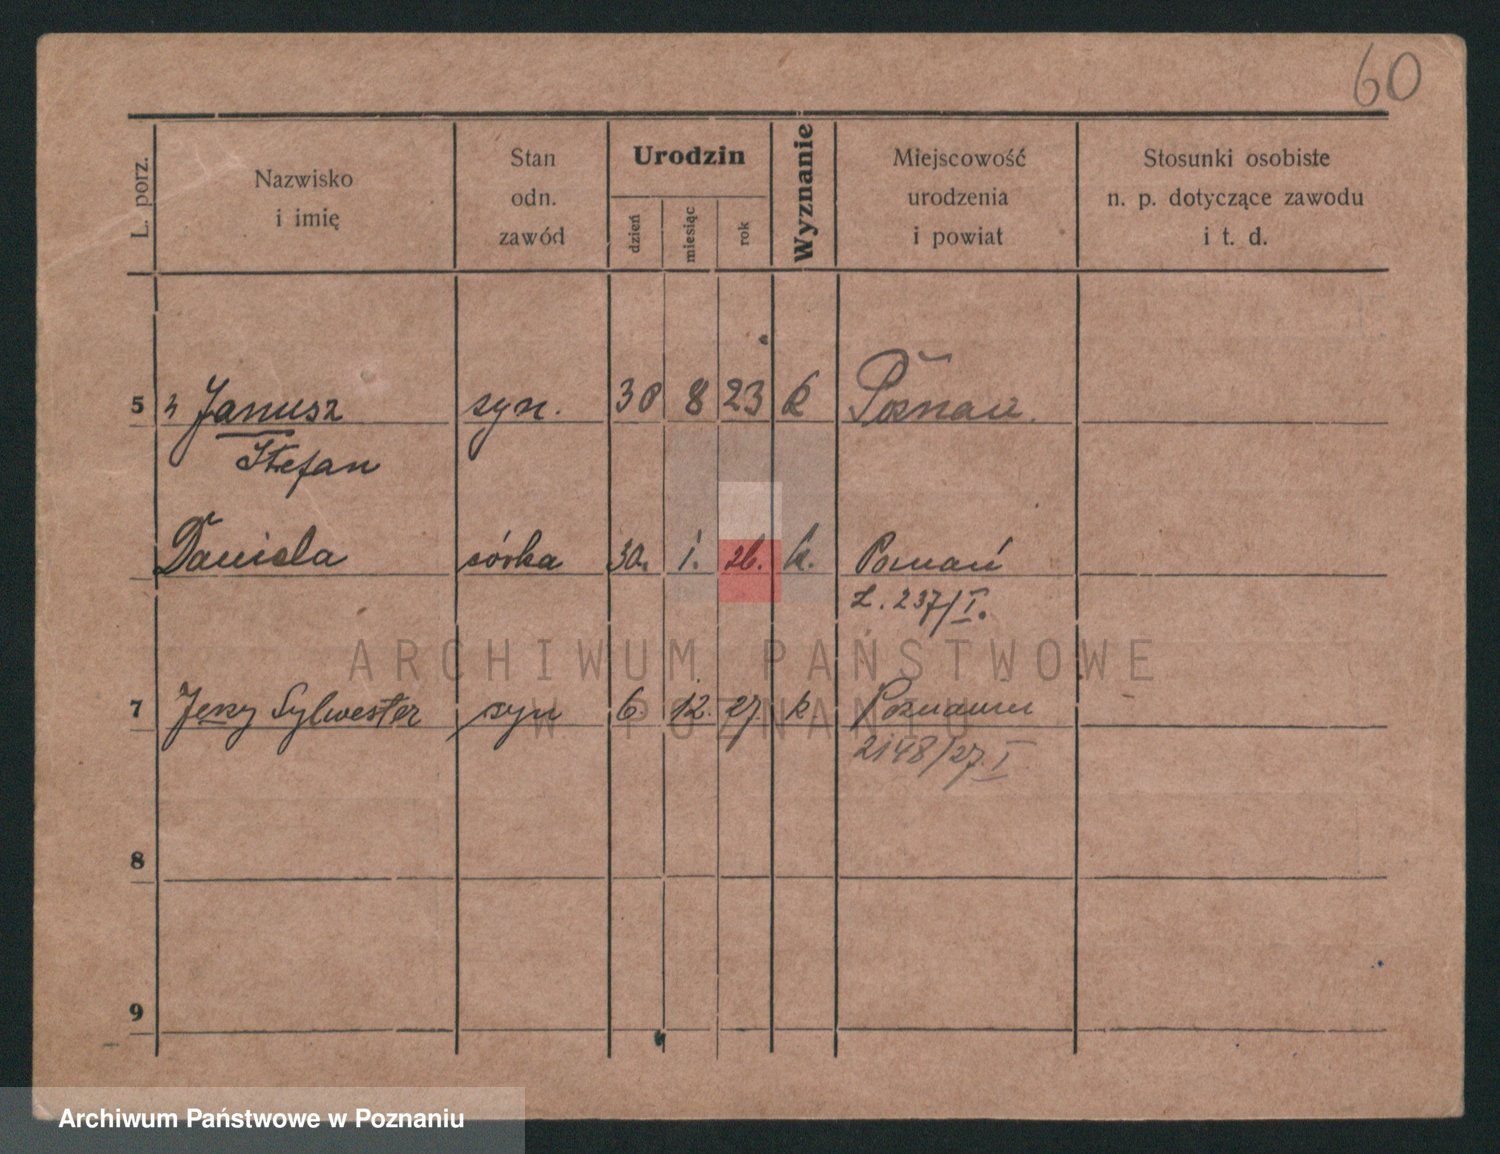 60
L. porz.
Nazwisko
i imię
Stan
odn.
zawód
Urodzin
dzień
miesiąc
rok
Wyznanie
Miejscowość
urodzenia
i powiat
Stosunki osobiste
n. p. dotyczące zawodu
i t. d.
5 Janusz syn. 30 8 23 k Poznań.
Stefan
Daniela córka 30. 1. 26. k. Poznań
Z. 237/I.
ARCHIWUM PAŃSTWOWE
W POZNANIU
7 Jerzy Sylwester syn 6. 12. 27 k Poznaniu
2148/27. I
8
9
Archiwum Państwowe w Poznaniu